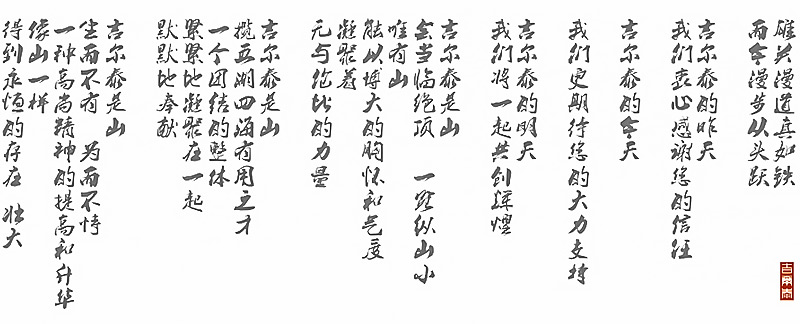 雄关漫道真如铁
而今漫步从头跃
吉尔泰的昨天
我们衷心感谢您的信任
吉尔泰的今天
我们更期待您的大力支持
吉尔泰的明天
我们将一起共创辉煌
吉尔泰是山
会当临绝顶 一览纵山小
唯有山
能以博大的胸怀和气度
凝聚着
无与伦比的力量
吉尔泰是山
揽五湖四海有用之才
一个团结的整体
紧紧地凝聚在一起
默默地奉献
吉尔泰是山
生而不有 为而不恃
一种高尚精神的提高和升华
像山一样
得到永恒的存在 壮大
吉尔泰